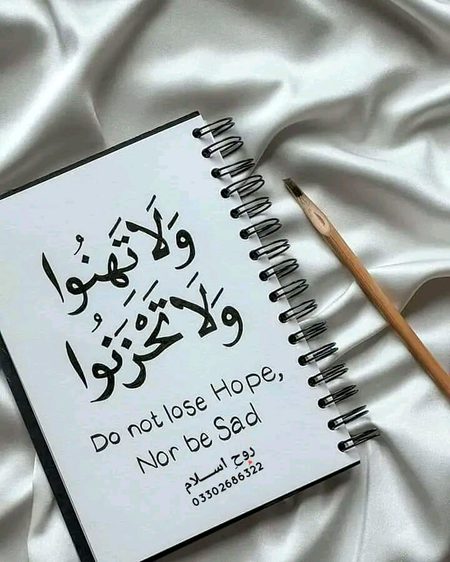 وَلَا تَهِنُوا
وَلَا تَحْزَنُوا
Do not lose Hope,
Nor be Sad
روح اسلام
03302686322